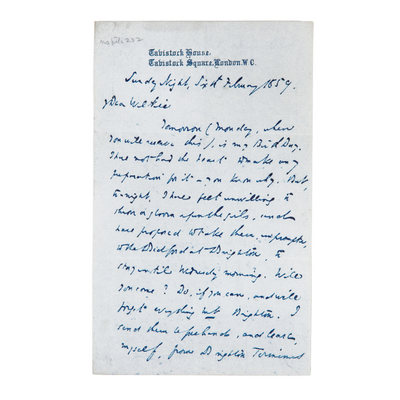 Tavistock House.
Tavistock Square. London. W.C.
Sunday Night, Sixth February 1859.
My Dear Wilkie
Tomorrow (Monday, when
you will receive this), is my Birth Day.
I have not had the heart to make any
preparation for it – you know why. But,
tonight, I have felt unwilling to
throw a gloom upon the girls, and
have proposed to take them, impromptu,
to the Bedford at Brighton, to
stay until Wednesday morning. Will
you come? Do, if you can, and we'll
forget everything but Brighton. I
send them beforehand, and leave
myself, from Brighton Terminus